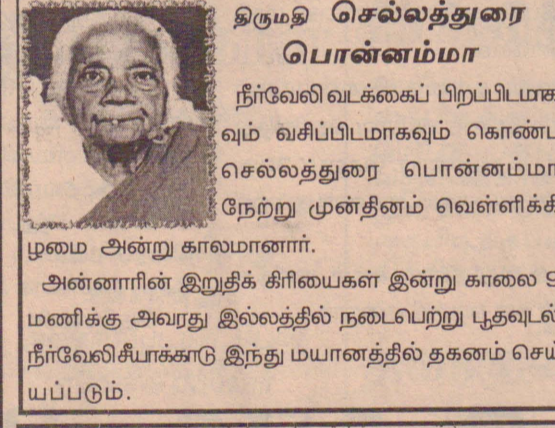 திருமதி செல்லத்துரை
பொன்னம்மா
நீர்வேலி வடக்கைப் பிறப்பிடமாக
வும் வசிப்பிடமாகவும் கொண்ட
செல்லத்துரை பொன்னம்மா
நேற்று முன்தினம் வெள்ளிக்கி
ழமை அன்று காலமானார்.
அன்னாரின் இறுதிக் கிரியைகள் இன்று காலை 9
மணிக்கு அவரது இல்லத்தில் நடைபெற்று பூதவுடல்
நீர்வேலிசீயாக்காடு இந்து மயானத்தில் தகனம் செய்
யப்படும்.